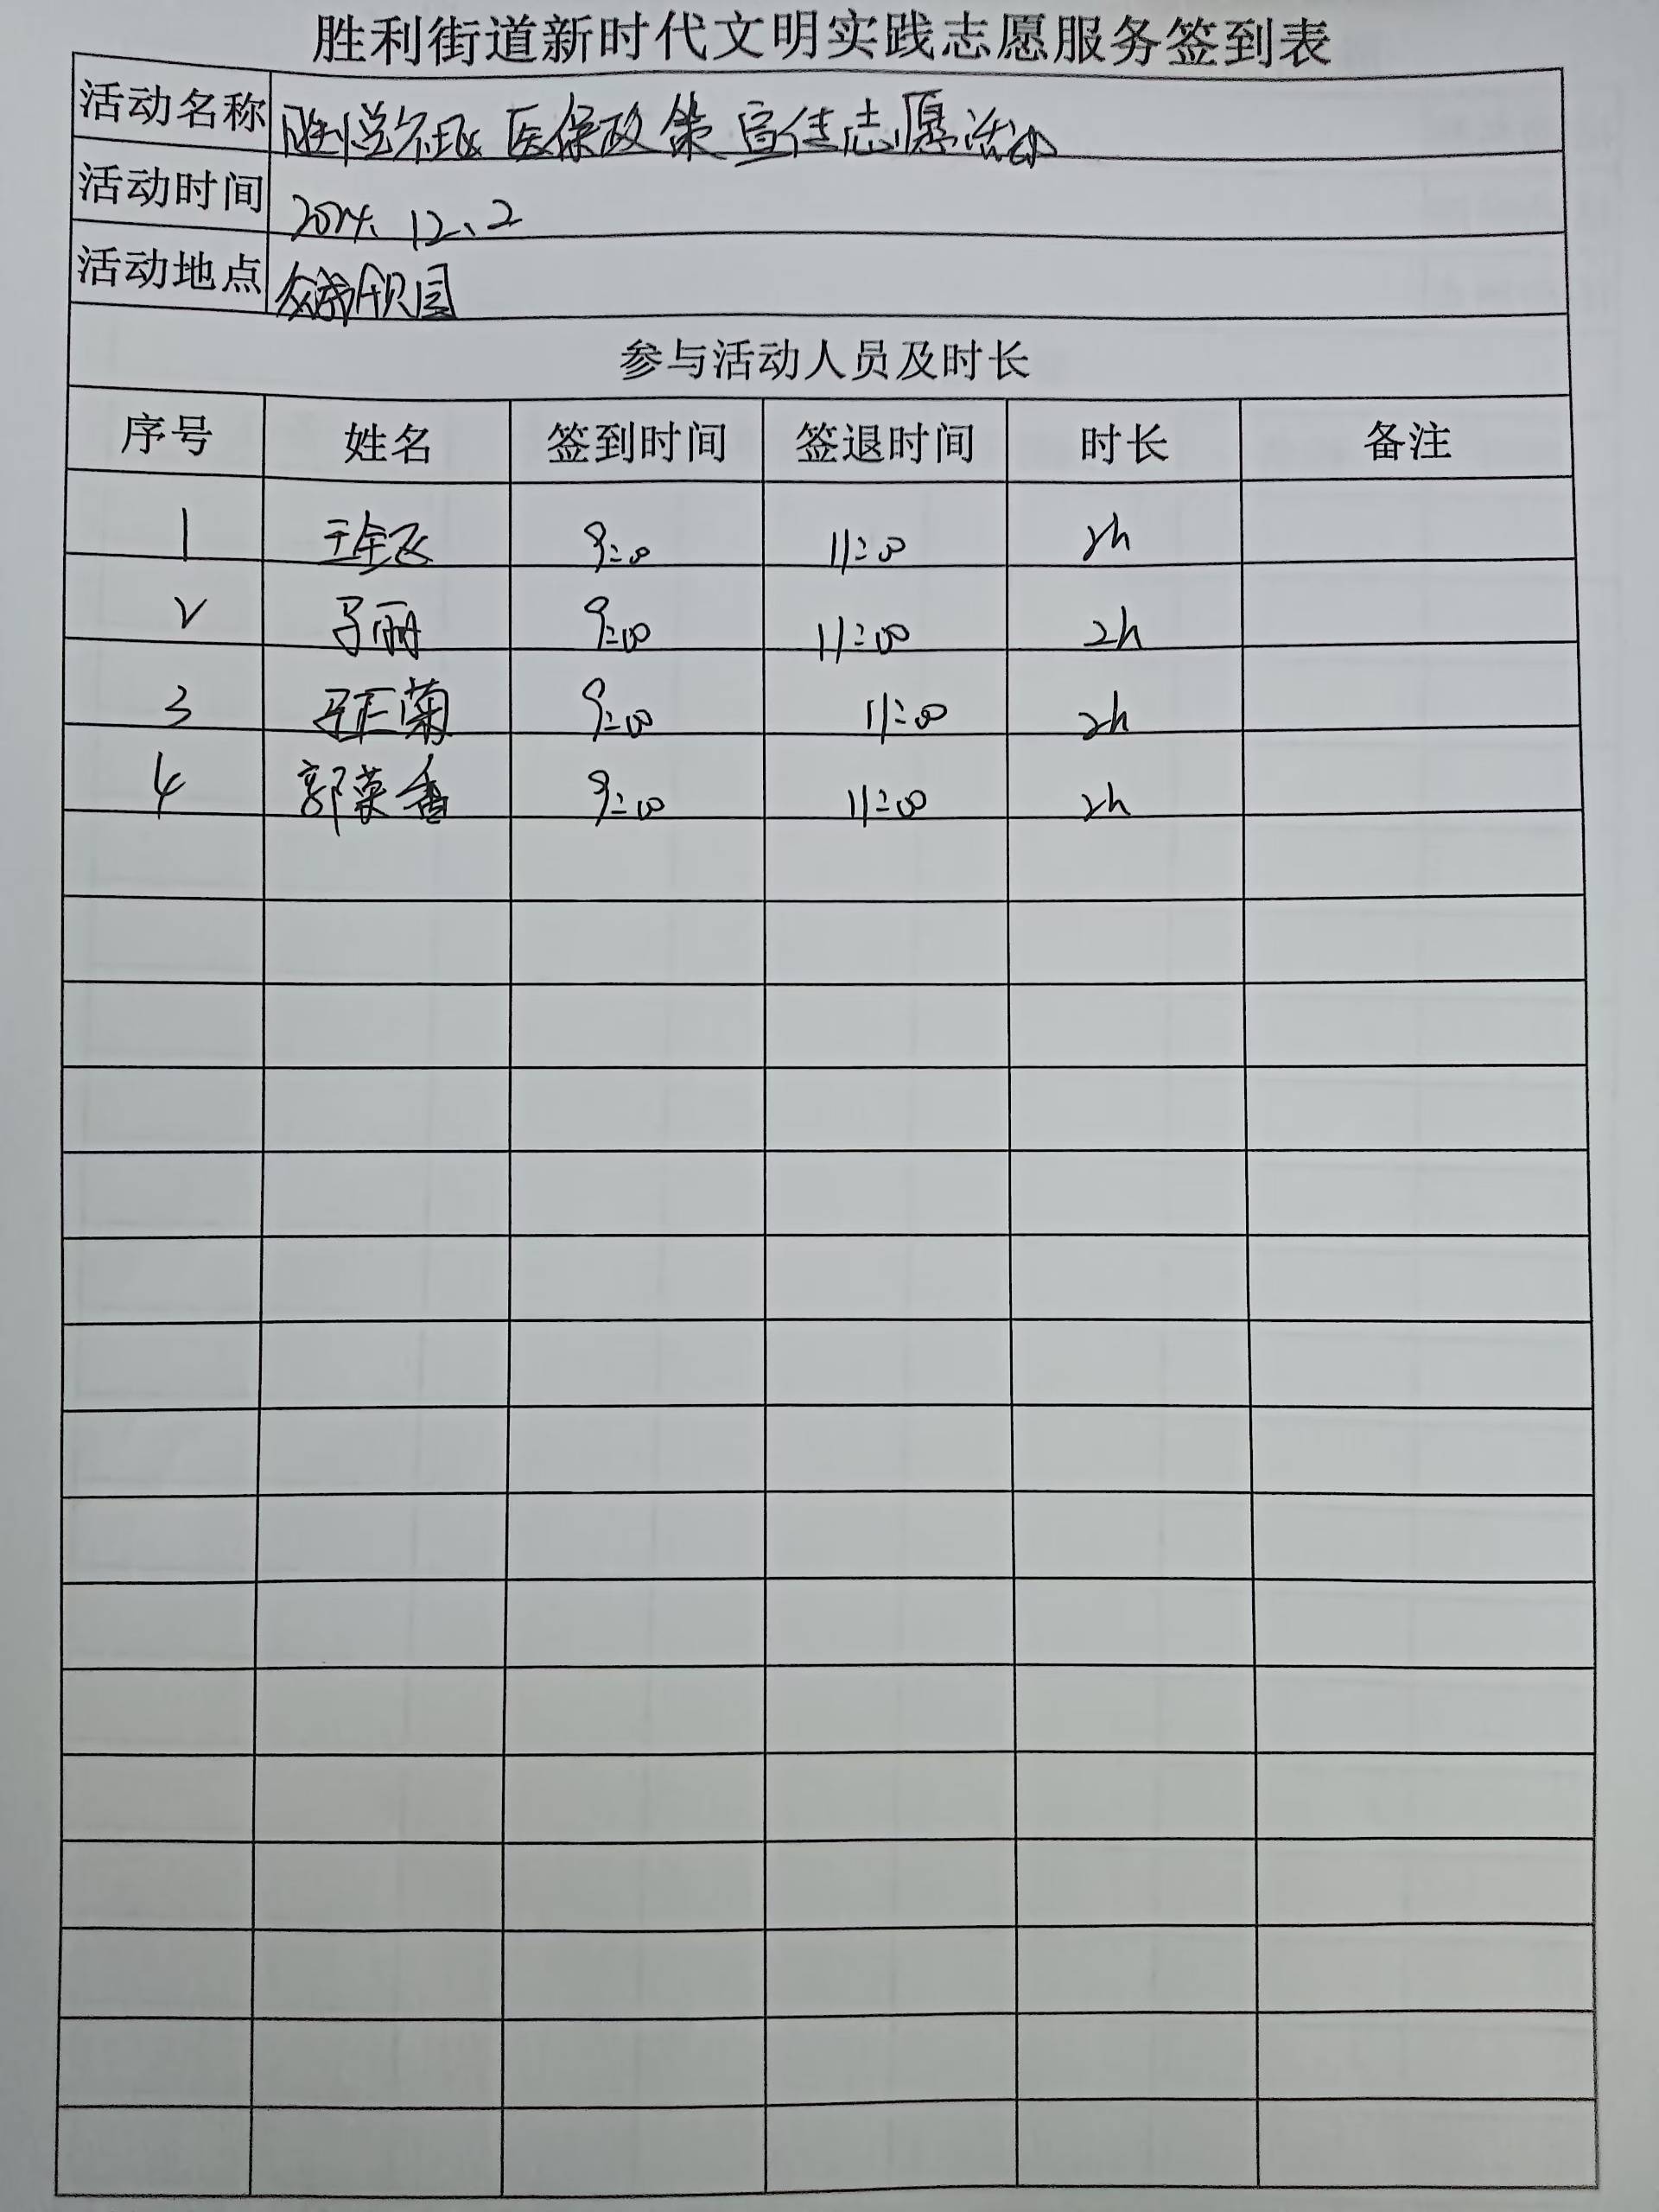 胜利街道新时代文明实践志愿服务签到表
活动名称 医保政策宣传志愿活动
活动时间 2024.12.2
活动地点
参与活动人员及时长
序号 姓名 签到时间 签退时间 时长 备注
1 9:00 11:00 2h
2 马丽 9:00 11:00 2h
3 菊 9:00 11:00 2h
4 郭菜香 9:00 11:00 2h